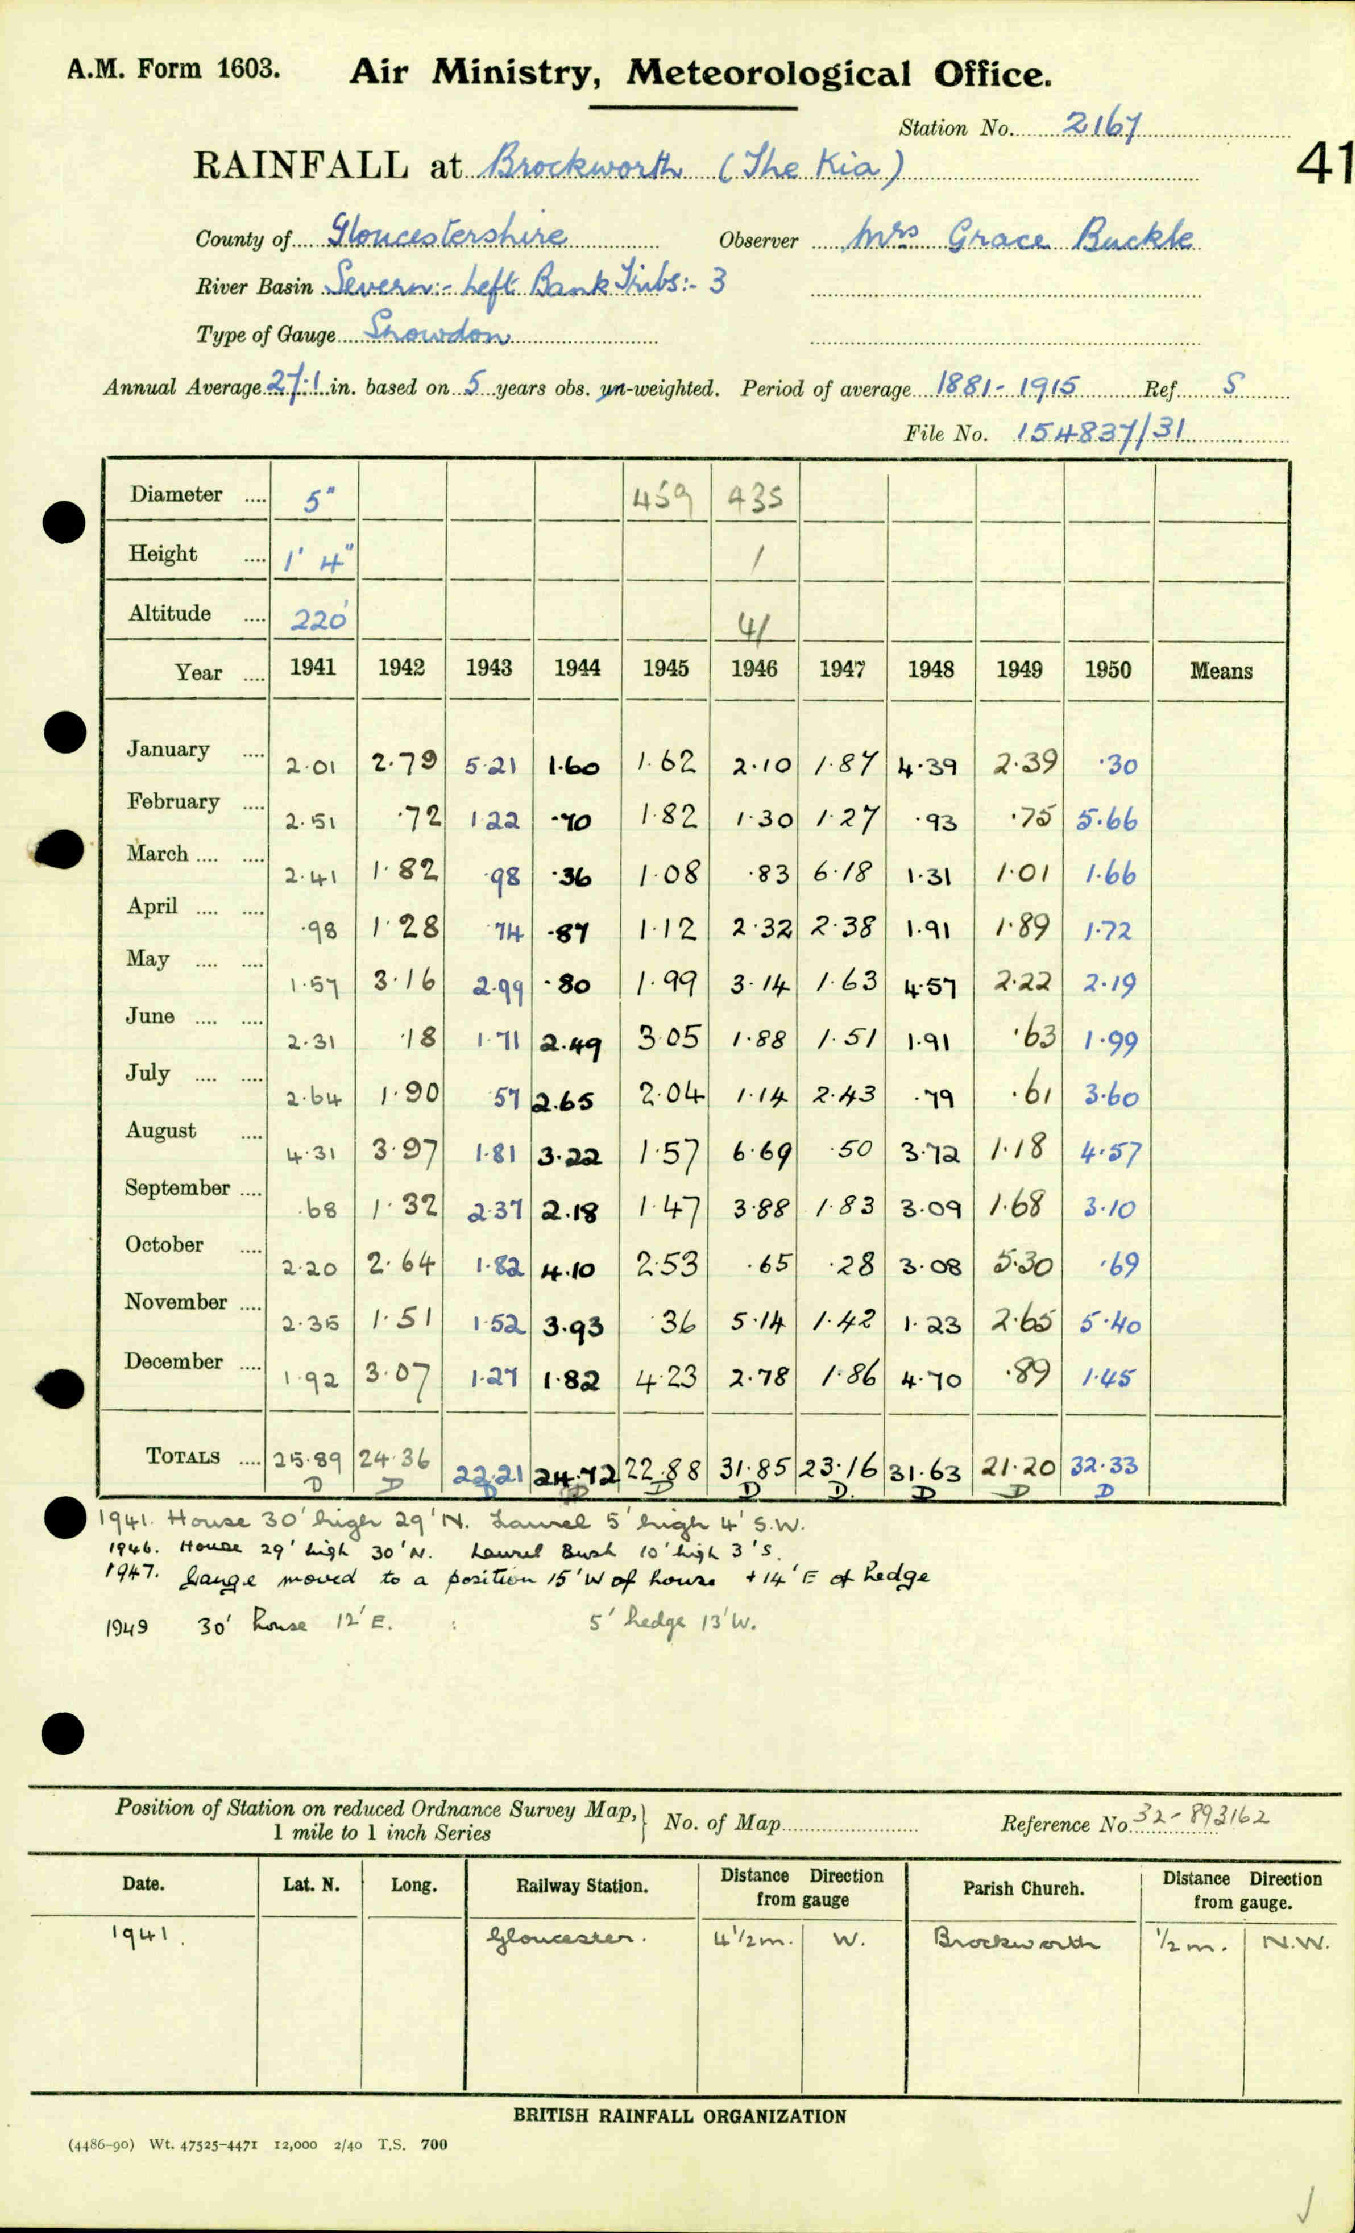 A.M. Form 1603. Air Ministry, Meteorological Office.
Station No. 2167
41
RAINFALL at Brockworth (The Kia)
County of Gloucestershire Observer Mrs Grace Buckle
River Basin Severn:- Left Bank Tribs:- 3
Type of Gauge Snowdon
Annual Average 27.1 in. based on 5 years obs. un-weighted. Period of average 1881-1915 Ref. S
File No. 154837/31
Diameter .... 5" 459 435
Height .... 1' 4" 1
Altitude .... 220' 41
Year .... 1941 1942 1943 1944 1945 1946 1947 1948 1949 1950 Means
January .... 2.01 2.79 5.21 1.60 1.62 2.10 1.87 4.39 2.39 .30
February .... 2.51 .72 1.22 .70 1.82 1.30 1.27 .93 .75 5.66
March .... .... 2.41 1.82 .98 .36 1.08 .83 6.18 1.31 1.01 1.66
April .... .... .98 1.28 .74 .87 1.12 2.32 2.38 1.91 1.89 1.72
May .... .... 1.57 3.16 2.99 .80 1.99 3.14 1.63 4.57 2.22 2.19
June .... .... 2.31 .18 1.71 2.49 3.05 1.88 1.51 1.91 .63 1.99
July .... .... 2.64 1.90 .57 2.65 2.04 1.14 2.43 .79 .61 3.60
August .... 4.31 3.97 1.81 3.22 1.57 6.69 .50 3.72 1.18 4.57
September .... .68 1.32 2.37 2.18 1.47 3.88 1.83 3.09 1.68 3.10
October .... 2.20 2.64 1.82 4.10 2.53 .65 .28 3.08 5.30 .69
November .... 2.35 1.51 1.52 3.93 .36 5.14 1.42 1.23 2.65 5.40
December .... 1.92 3.07 1.27 1.82 4.23 2.78 1.86 4.70 .89 1.45
TOTALS .... 25.89 24.36 22.21 24.72 22.88 31.85 23.16 31.63 21.20 32.33
D D D D D D D D D D
1941. House 30' high 29' N. Laurel 5' high 4' S.W.
1946. House 29' high 30' N. Laurel Bush 10' high 3' S.
1947. Gauge moved to a position 15' W of house + 14' E of hedge
1949 30' house 12' E. : 5' hedge 13' W.
Position of Station on reduced Ordnance Survey Map, 1 mile to 1 inch Series } No. of Map Reference No. 32-893162
Date. Lat. N. Long. Railway Station. Distance Direction from gauge Parish Church. Distance Direction from gauge.
1941. Gloucester. 4½m. W. Brockworth ½m. N.W.
BRITISH RAINFALL ORGANIZATION
(4486-90) Wt. 47525-4471 12,000 2/40 T.S. 700